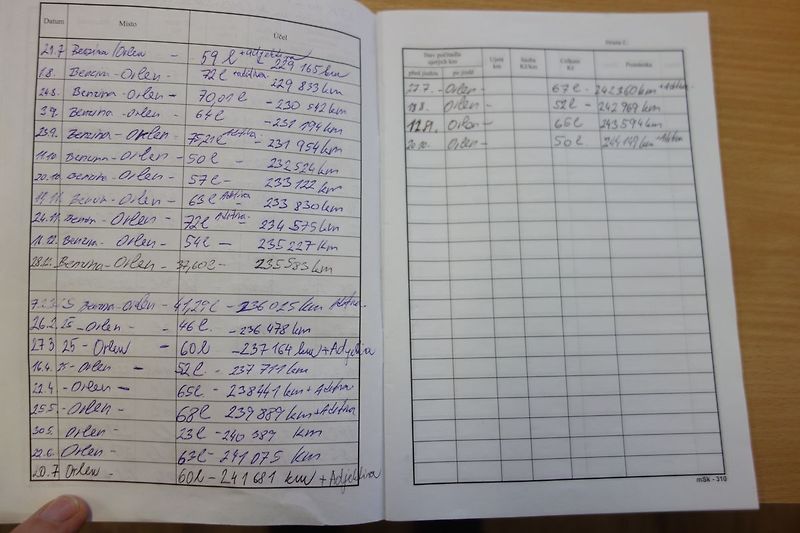 Datum Místo Účel
29.7 Benzina/Orlen - 59l + Adjektiva - 229 165 km
1.8. Benzina-Orlen - 72l + aditiva - 229 833 km
24.8. Benzina-Orlen - 70,01l - 230 542 km
3.9. Benzina-Orlen - 64l - 231 194 km
23.9. Benzina-Orlen - 75,21l Aditiva - 231 954 km
11.10. Benzina-Orlen - 50l - 232 524 km
20.10. Benzina-Orlen - 57l - 233 122 km
19.11. Benzin-Orlen - 63l Aditiva - 233 830 km
24.11. Benzin-Orlen - 72l Aditiva - 234 575 km
11.12. Benzin-Orlen - 54l - 235 227 km
28.12. Benzina-Orlen - 37,60l - 235 583 km
Benzina-Orlen - 41,29l - 236 025 km Aditiva
26.2. 25 - Orlen - 46l - 236 478 km
27.3 25 - Orlen - 60l - 237 164 km + Adjektiva
16.4. 25 - Orlen - 52l - 237 711 km
22.4 - Orlen - 65l - 238 441 km + Aditiva
25.5. - Orlen - 68l 239 889 km + Aditiva
30.5. Orlen - 23l - 240 389 km
22.6. Orlen - 63l - 241 075 km
20.7 Orlen - 60l - 241 681 km + Adjektiva
Strana 2
Stav počítadla ujetých km Ujeté km Sazba Kč/km Celkem Kč Poznámka
před jízdou po jízdě
27.7. - Orlen - 67l - 242 360 km + Aditiva
Orlen - 52l - 242 969 km
Orlen - 66l - 243 594 km
20.10. Orlen - 50l - 244 149 km + Aditiva
mSk - 310